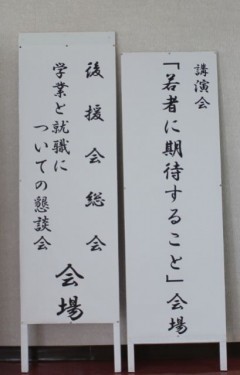 講演会
「若者に期待すること」会場
後援会総会
学業と就職に
ついての懇談会
会場